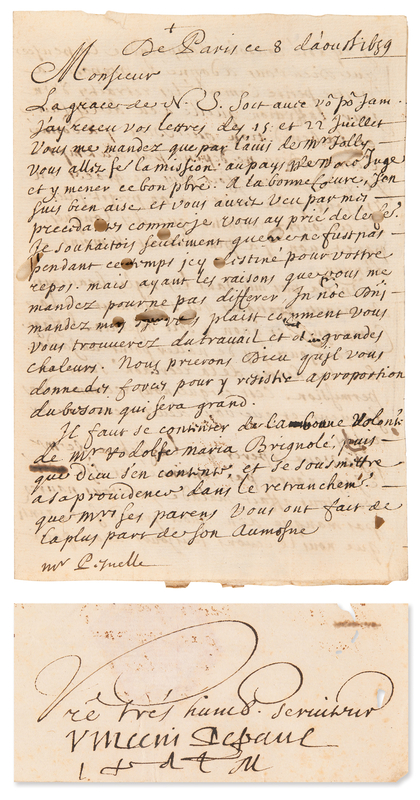 De Paris ce 8 d'aoust 1659
Monsieur
La grace de N. S. soit avec võ po Jam.
J'ay receu vos lettres des 15 et 22 Juillet
Vous me mandez que par l'auis de Mr Jolly
vous allez fe la mission au pays de
et y mener ce bon pbre. A la bonne heure, J'en
suis bien aise et vous aurez veu par mes
precedantes comme je vous ay prié de le fe.
Je souhaitois seulement que ce ne fust pas
pendant ce temps icy destiné pour vostre
repos. mais ayant les raisons que vous me
mandez pour ne pas differer
mandez moy vous plaist comment vous
vous trouverez du travail et des grandes
chaleurs. Nous prierons Dieu qu'il vous
donne des forces pour y resister a proportion
du besoin qui sera grand.
Il faut se contenter de la bonne Volonté
de Mr Rodolfe Maria Brignolé, puis
que Dieu s'en contente, et se sousmettre
a sa providence dans le retranchemt.
que mrs ses parens vous ont fait de
la plus part de son Aumosne
mr P.
Vre trés humb. serviteur
Vincent Depaul